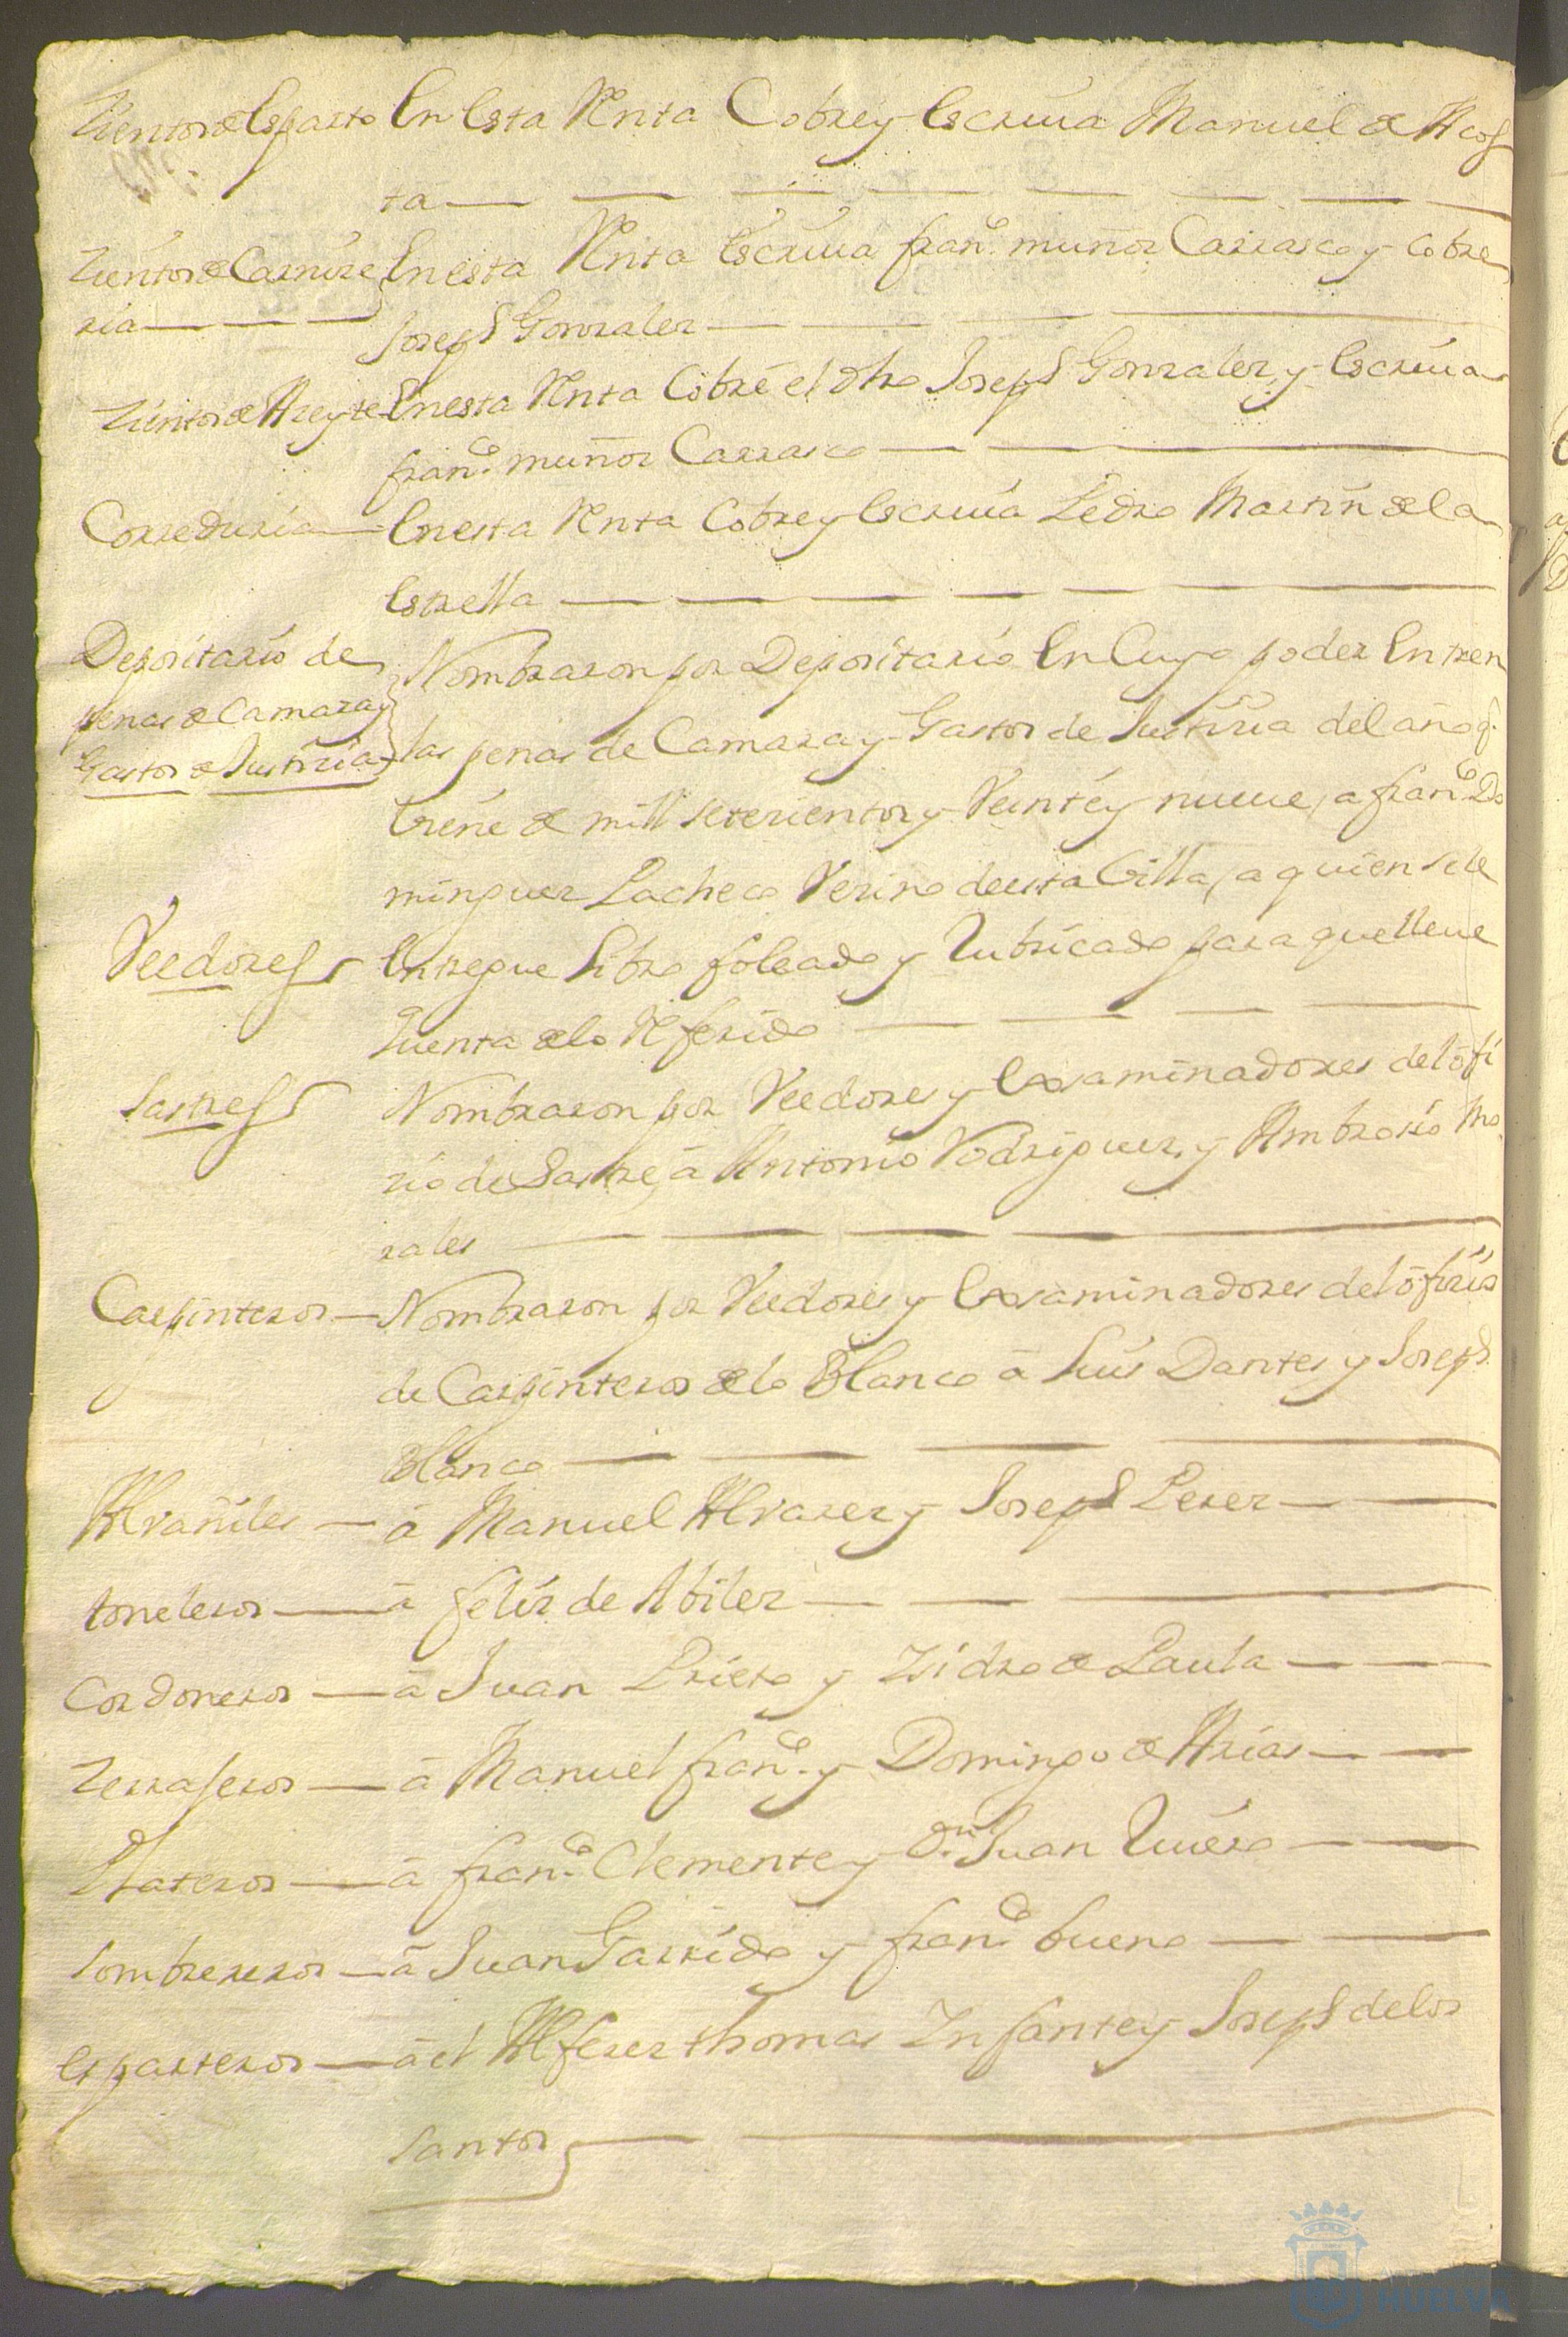 Zientos de Esparto En Esta Renta Cobre y Escriua Manuel de Acos
ta
Zientos de Carnize En esta Renta Escriua fran.co muñoz Carrasco y Cobre
ria Joseph Gonzalez
Zientos de Azeyte En esta Renta Cobre el dho Joseph Gonzalez y Escriua
fran.co muñoz Carrasco
Correduria En esta Renta Cobre y Escriua Pedro Martin de la
Estrella
Depositario de Nombraron por Depositario En Cuyo poder Entren
penas de Camara y las penas de Camara y Gastos de Justizia del año q.
Gastos de Justizia
Viene de mill setezientos y Veinte y nueue, a fran.co Do
minguez Pacheco Vezino de esta Villa, a quien se le
Veedores Entregue Libro foleado y Rubricado para que lleue
Quenta de lo Referido
Sastres Nombraron por Veedores y Exsaminadores del ofi
zio de Sastre, a Antonio Rodriguez, y Ambrosio Mo
rales
Carpinteros Nombraron por Veedores y Exsaminadores del ofizio
de Carpinteros de lo Blanco a Luis Dantes y Joseph
Blanco
Alvañiles a Manuel Alvarez y Joseph Perez
toneleros a feliz de Abilez
Cordoneros a Juan Prieto y Zidro de Paula
Zerrajeros a Manuel fran.co y Domingo de Arias
Plateros a fran.co Clemente y D.n Juan Quiero
Sombrereros a Juan Garrido y fran.co bueno
Esparteros a el Alferez thomas Infante y Joseph de los
Santos
HUELVA